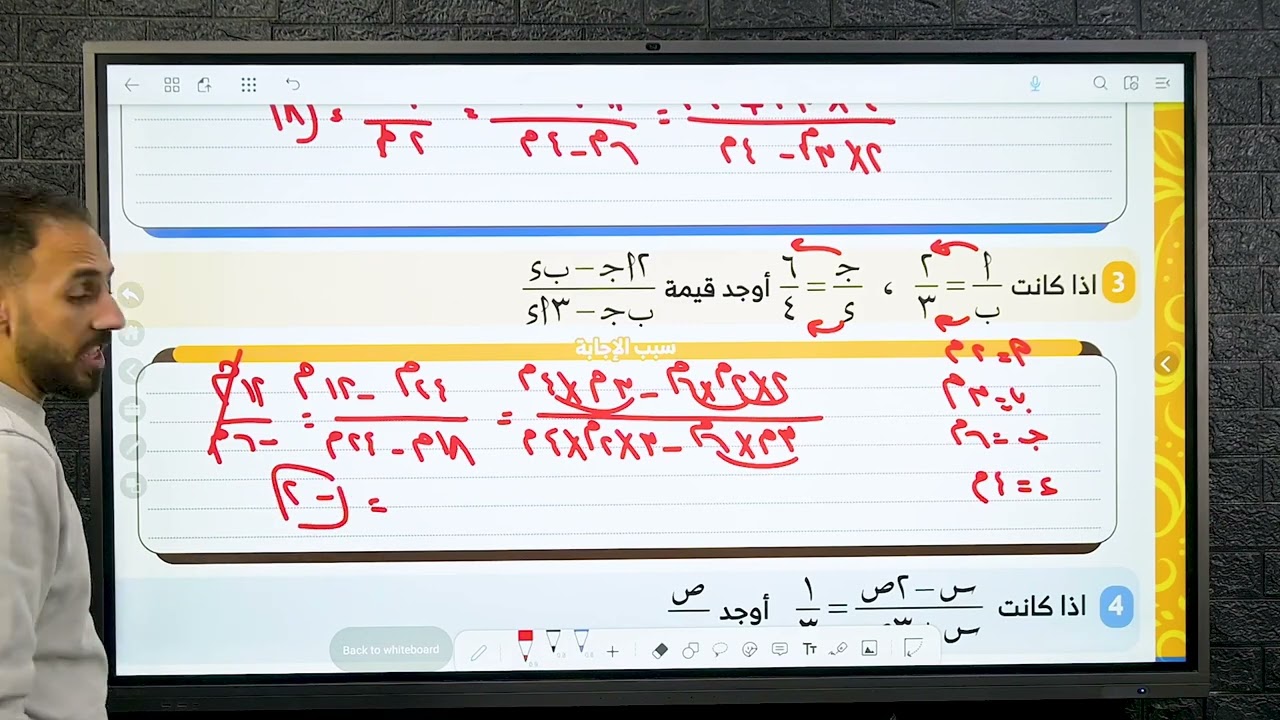 ٢×٣م - ٤م
٦م - ٤م
٢م
3 اذا كانت أ/ب = ٢/٣ ، ج/ء = ٦/٤ أوجد قيمة (٢أج - بء)/(بج - ٣أء)
سبب الإجابة
أ = ٢م
ب = ٣م
ج = ٦م
ء = ٤م
(٢×٢م×٦م - ٣م×٤م)/(٣م×٦م - ٣×٢م×٤م) = (٢٤م - ١٢م)/(١٨م - ٢٤م) = ١٢م/-٦م
= -٢
4 اذا كانت (س - ٢ص)/(س + ٣ص) = ١/٣ أوجد ص
Back to whiteboard
Tт